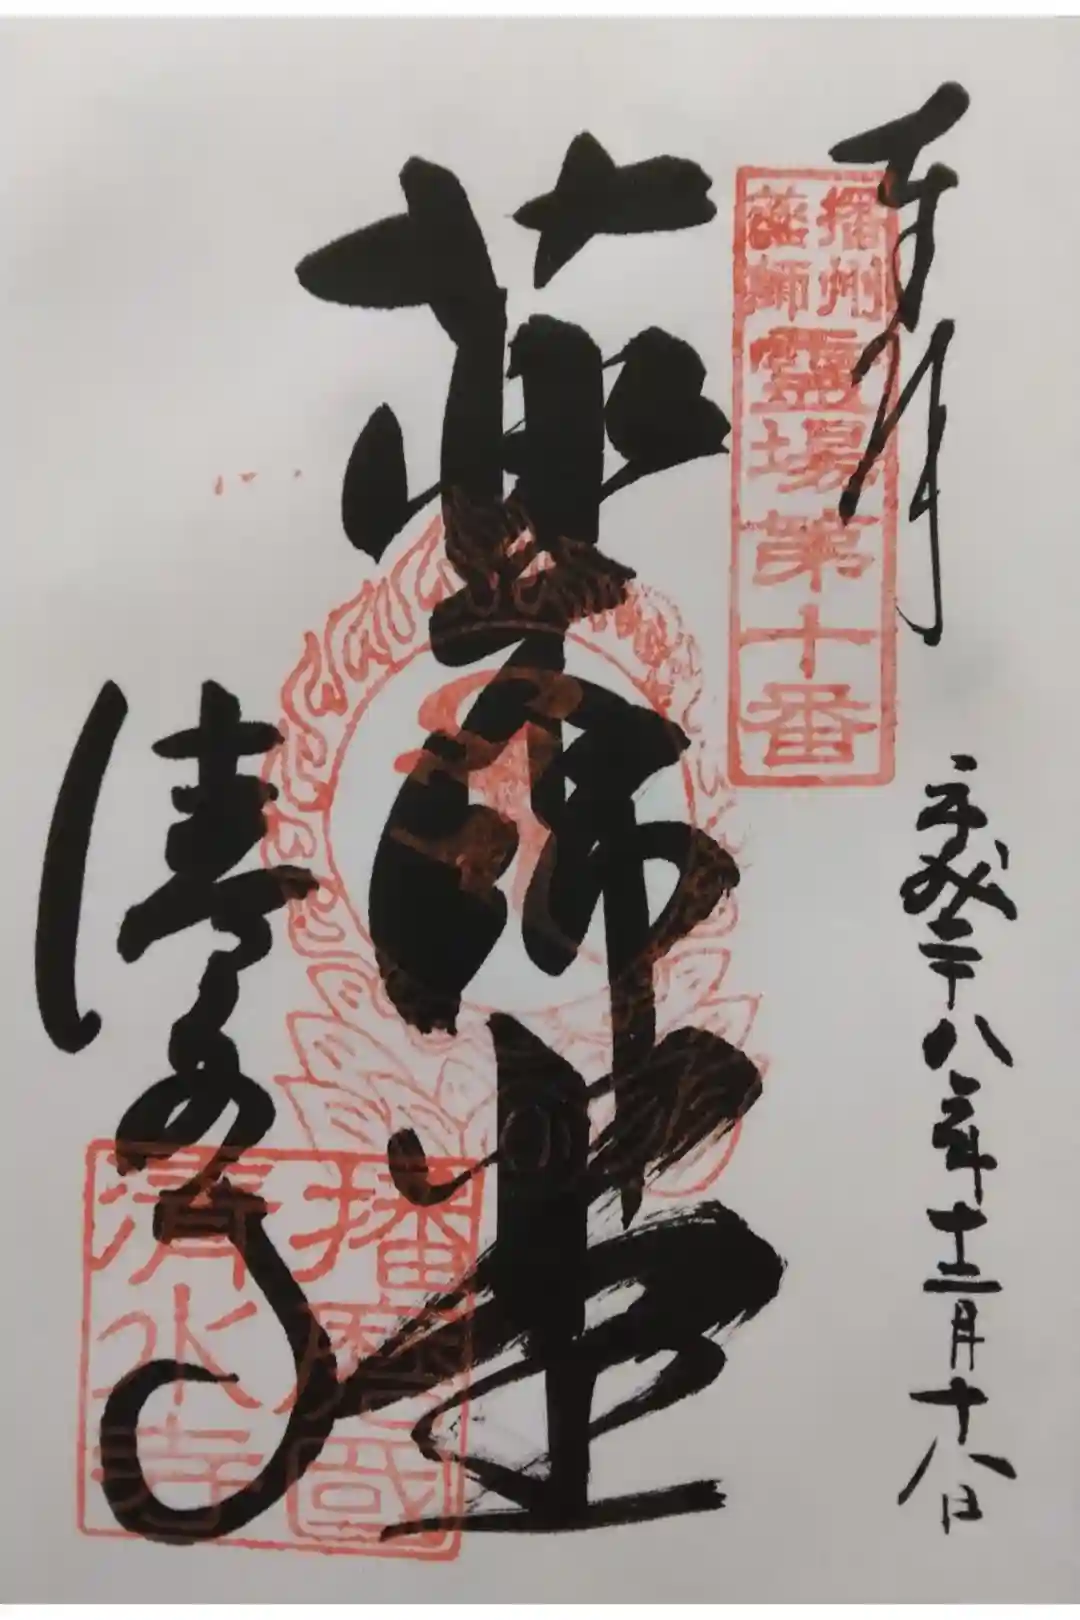 奉拝
播州
薬師
靈場第十番
平成二十八年十二月十八日
薬師堂
清水寺
播磨國
清水寺